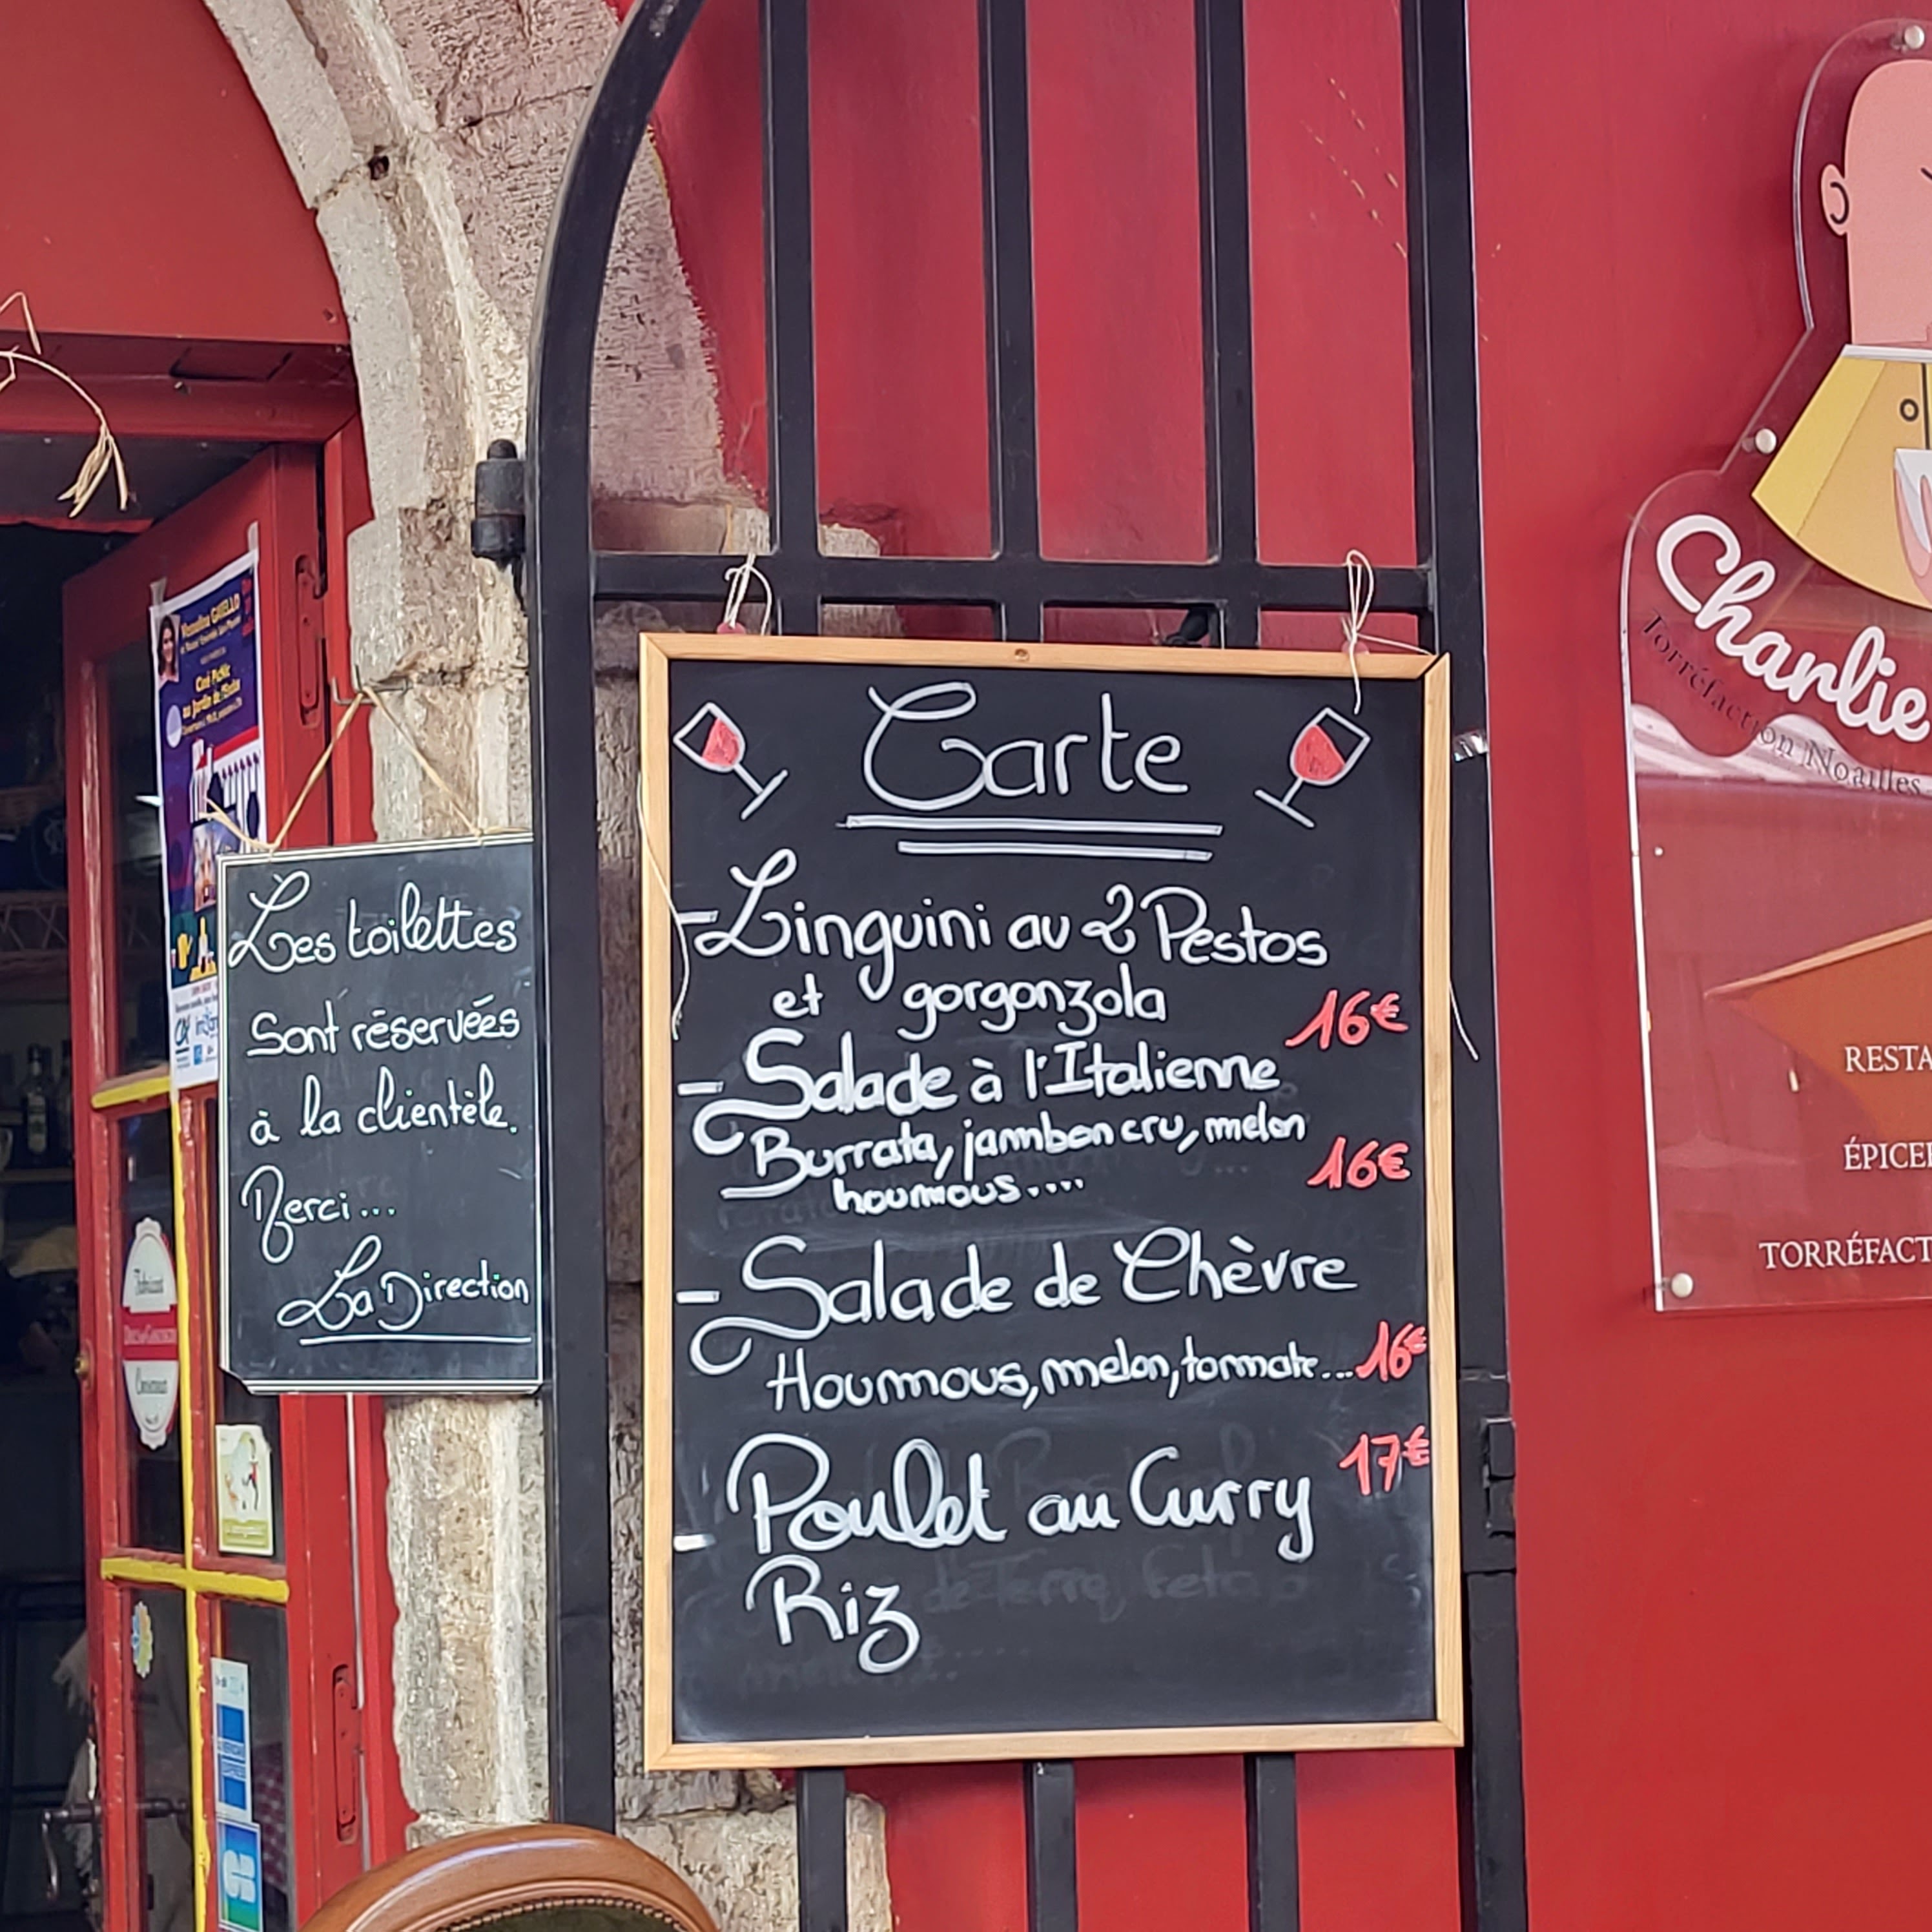 Carte
- Linguini au 2 Pestos
et gorgonzola
16€
- Salade à l'Italienne
Burrata, jambon cru, melon
houmous....
16€
- Salade de Chèvre
Houmous, melon, tomate...16€
17€
- Poulet au Curry
Riz
Les toilettes
Sont réservées
à la clientèle.
Merci...
La Direction
Charlie
Torréfaction Noailles
RESTA
ÉPICE
TORRÉFACT
Ciné Picnic